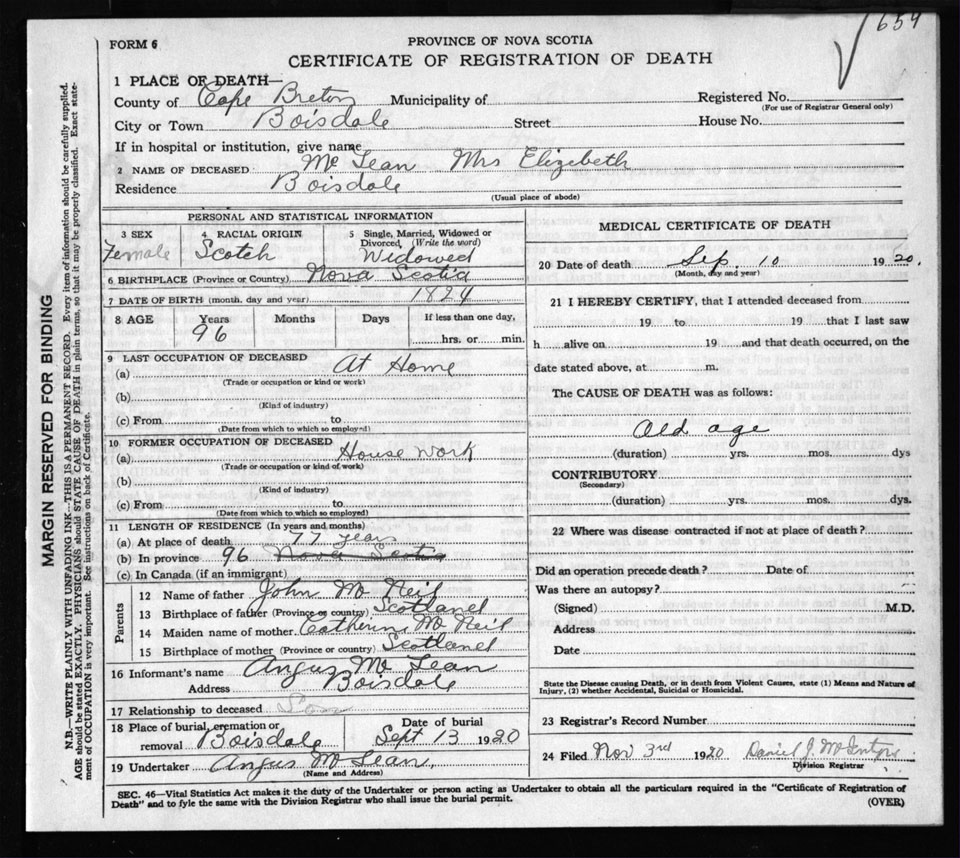 654
FORM 6
PROVINCE OF NOVA SCOTIA
CERTIFICATE OF REGISTRATION OF DEATH
1 PLACE OF DEATH—
County of Cape Breton Municipality of Registered No.
(For use of Registrar General only)
City or Town Boisdale Street House No.
If in hospital or institution, give name
2 NAME OF DECEASED Mc Lean Mrs Elizebeth
Residence Boisdale
(Usual place of abode)
PERSONAL AND STATISTICAL INFORMATION
3 SEX Female
4 RACIAL ORIGIN Scotch
5 Single, Married, Widowed or Divorced, (Write the word) Widowed
6 BIRTHPLACE (Province or Country) Nova Scotia
7 DATE OF BIRTH (month, day and year) 1824
8 AGE Years Months Days If less than one day,
96 hrs. or min.
9 LAST OCCUPATION OF DECEASED
(a) At Home
(Trade or occupation or kind or work)
(b)
(Kind of industry)
(c) From to
(Date from which to which so employed)
10 FORMER OCCUPATION OF DECEASED
(a) House work
(Trade or occupation or kind of work)
(b)
(Kind of industry)
(c) From to
(Date from which to which so employed)
11 LENGTH OF RESIDENCE (In years and months)
(a) At place of death 77 years
(b) In province 96 Nova Scotia
(c) In Canada (if an immigrant)
Parents
12 Name of father John Mc Neil
13 Birthplace of father (Province or country) Scotland
14 Maiden name of mother Catherin Mc Neil
15 Birthplace of mother (Province or country) Scotland
16 Informant's name Angus Mc Lean
Address Boisdale
17 Relationship to deceased Son
18 Place of burial, cremation or removal Boisdale
Date of burial Sept 13 1920
19 Undertaker Angus Mc Lean,
(Name and Address)
MEDICAL CERTIFICATE OF DEATH
20 Date of death Sep. 10 1920.
(Month, day and year)
21 I HEREBY CERTIFY, that I attended deceased from
19 to 19 that I last saw
h alive on 19 and that death occurred, on the
date stated above, at m.
The CAUSE OF DEATH was as follows:
Old age
(duration) yrs. mos. dys
CONTRIBUTORY
(Secondary)
(duration) yrs. mos. dys.
22 Where was disease contracted if not at place of death?
Did an operation precede death? Date of
Was there an autopsy?
(Signed) M.D.
Address
Date
State the Disease causing Death, or in death from Violent Causes, state (1) Means and Nature of
Injury, (2) whether Accidental, Suicidal or Homicidal.
23 Registrar's Record Number
24 Filed Nov 3rd 1920 Daniel J. McIntyre
Division Registrar
SEC. 46—Vital Statistics Act makes it the duty of the Undertaker or person acting as Undertaker to obtain all the particulars required in the "Certificate of Registration of
Death" and to fyle the same with the Division Registrar who shall issue the burial permit.
(OVER)
MARGIN RESERVED FOR BINDING
N.B.—WRITE PLAINLY WITH UNFADING INK—THIS IS A PERMANENT RECORD. Every item of information should be carefully supplied.
AGE should be stated EXACTLY. PHYSICIANS should STATE CAUSE OF DEATH in plain terms, so that it may be properly classified. Exact state-
ment of OCCUPATION is very important. See instructions on back of Certificate.